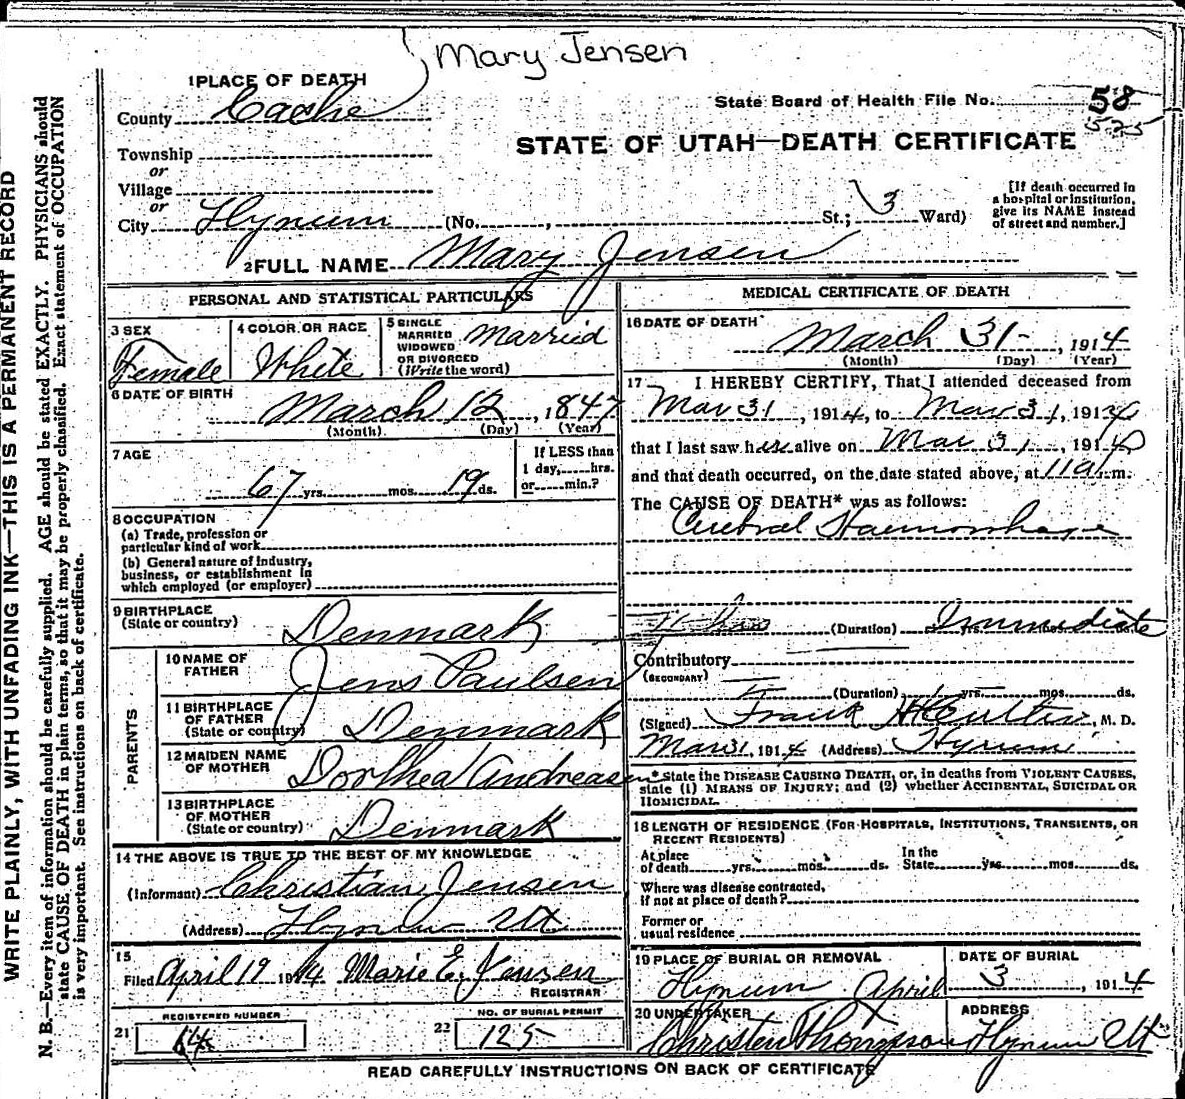 Mary Jensen
1 PLACE OF DEATH
County Cache
State Board of Health File No. 58
525
STATE OF UTAH—DEATH CERTIFICATE
Township
or
Village
or
City Hyrum (No. , St.; 3 Ward)
[If death occurred in a hospital or institution, give its NAME instead of street and number.]
2 FULL NAME Mary Jensen
PERSONAL AND STATISTICAL PARTICULARS
3 SEX Female
4 COLOR OR RACE White
5 SINGLE MARRIED WIDOWED OR DIVORCED (Write the word) Married
6 DATE OF BIRTH March 12, 1847
(Month) (Day) (Year)
7 AGE 67 yrs. mos. 19 ds.
If LESS than 1 day, hrs. or min.?
8 OCCUPATION
(a) Trade, profession or particular kind of work
(b) General nature of Industry, business, or establishment in which employed (or employer)
9 BIRTHPLACE (State or country) Denmark
PARENTS
10 NAME OF FATHER Jens Paulsen
11 BIRTHPLACE OF FATHER (State or country) Denmark
12 MAIDEN NAME OF MOTHER Dorthea Andreasen
13 BIRTHPLACE OF MOTHER (State or country) Denmark
14 THE ABOVE IS TRUE TO THE BEST OF MY KNOWLEDGE
(Informant) Christian Jensen
(Address) Hyrum Ut
15 Filed April 19 1914 Marie E. Jensen
REGISTRAR
21 REGISTERED NUMBER 64
22 NO. OF BURIAL PERMIT 125
MEDICAL CERTIFICATE OF DEATH
16 DATE OF DEATH March 31 , 1914
(Month) (Day) (Year)
17 I HEREBY CERTIFY, That I attended deceased from
Mar 31 , 1914, to Mar 31, 1914
that I last saw her alive on Mar 31 , 1914
and that death occurred, on the date stated above, at 11 a m.
The CAUSE OF DEATH* was as follows:
Cerebral Haemorrhage
(Duration) yrs. mos. ds. Immediate
Contributory
(SECONDARY)
(Duration) yrs. mos. ds.
(Signed) Frank , M. D.
Mar 31, 1914 (Address) Hyrum
*State the DISEASE CAUSING DEATH, or, in deaths from VIOLENT CAUSES, state (1) MEANS OF INJURY; and (2) whether ACCIDENTAL, SUICIDAL OR HOMICIDAL.
18 LENGTH OF RESIDENCE (FOR HOSPITALS, INSTITUTIONS, TRANSIENTS, OR RECENT RESIDENTS)
At place of death yrs. mos. ds. In the State yrs. mos. ds.
Where was disease contracted, if not at place of death?
Former or usual residence
19 PLACE OF BURIAL OR REMOVAL Hyrum
DATE OF BURIAL April 3 , 1914
20 UNDERTAKER Christen Thompson
ADDRESS Hyrum Ut
READ CAREFULLY INSTRUCTIONS ON BACK OF CERTIFICATE
WRITE PLAINLY, WITH UNFADING INK—THIS IS A PERMANENT RECORD
N. B.—Every item of information should be carefully supplied. AGE should be stated EXACTLY. PHYSICIANS should
state CAUSE OF DEATH in plain terms, so that it may be properly classified. Exact statement of OCCUPATION
is very important. See instructions on back of certificate.